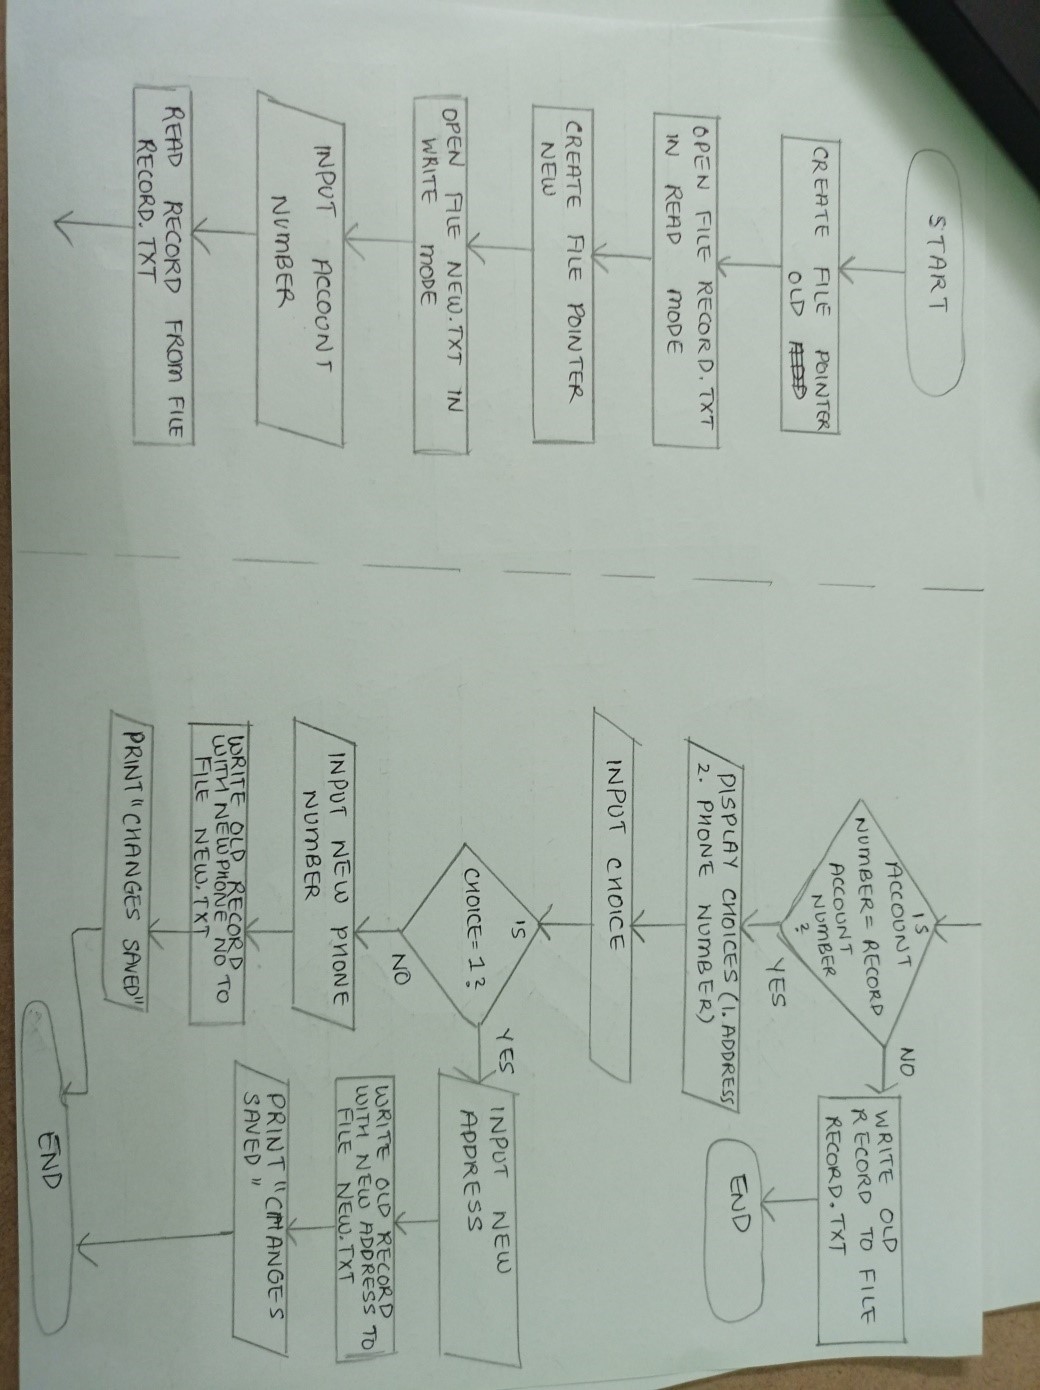 START
CREATE FILE POINTER
OLD
OPEN FILE RECORD.TXT
IN READ MODE
CREATE FILE POINTER
NEW
OPEN FILE NEW.TXT IN
WRITE MODE
INPUT ACCOUNT
NUMBER
READ RECORD FROM FILE
RECORD.TXT
IS
ACCOUNT
NUMBER= RECORD
ACCOUNT
NUMBER
?
NO
WRITE OLD
RECORD TO FILE
RECORD.TXT
END
YES
DISPLAY CHOICES (1. ADDRESS
2. PHONE NUMBER)
INPUT CHOICE
IS
CHOICE= 1?
YES
INPUT NEW
ADDRESS
WRITE OLD RECORD
WITH NEW ADDRESS TO
FILE NEW.TXT
PRINT "CHANGES
SAVED"
NO
INPUT NEW PHONE
NUMBER
WRITE OLD RECORD
WITH NEW PHONE NO TO
FILE NEW.TXT
PRINT "CHANGES SAVED"
END